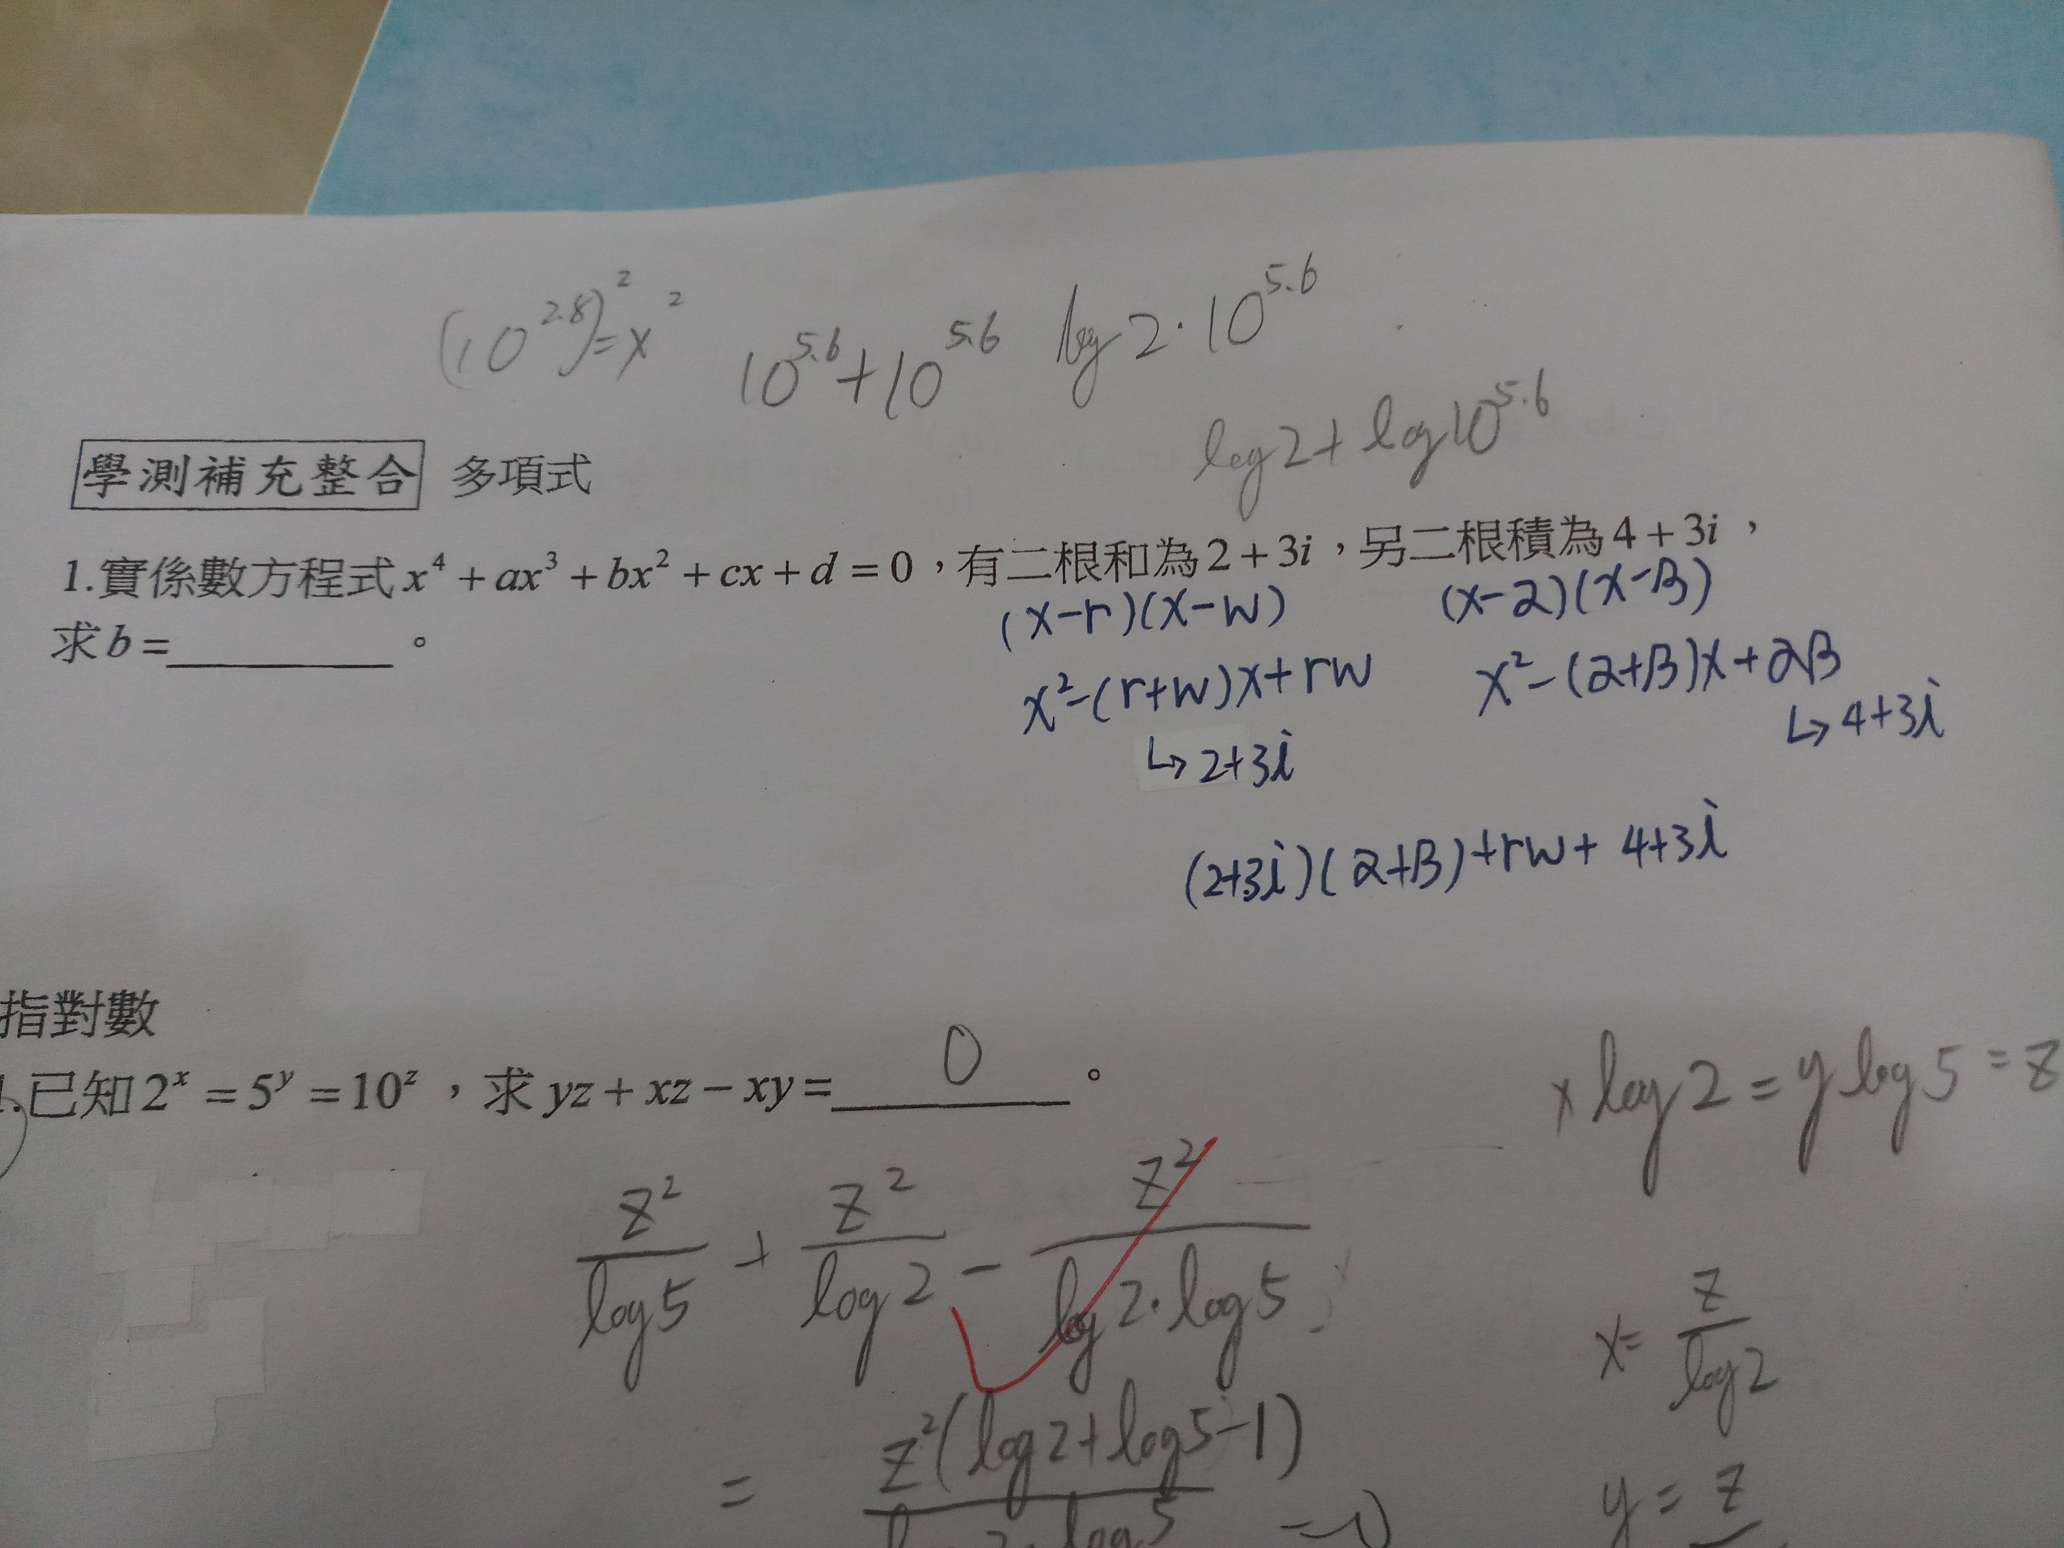 (10^2.8)^2 = x^2
10^5.6 + 10^5.6
log 2 · 10^5.6
log 2 + log 10^5.6
學測補充整合 多項式
1.實係數方程式 x^4 + ax^3 + bx^2 + cx + d = 0，有二根和為 2 + 3i，另二根積為 4 + 3i，
(x-r)(x-w) (x-α)(x-β)
求 b = ________ 。
x^2-(r+w)x+rw x^2-(α+β)x+αβ
↳ 2+3i ↳ 4+3i
(2+3i)(α+β)+rw+ 4+3i
指對數
1.已知 2^x = 5^y = 10^z，求 yz + xz − xy = 0 。
x log 2 = y log 5 = z
z^2/log 5 + z^2/log 2 − z^2/(log 2 · log 5)
x = z/log 2
= z^2(log 2 + log 5 − 1)
y = z